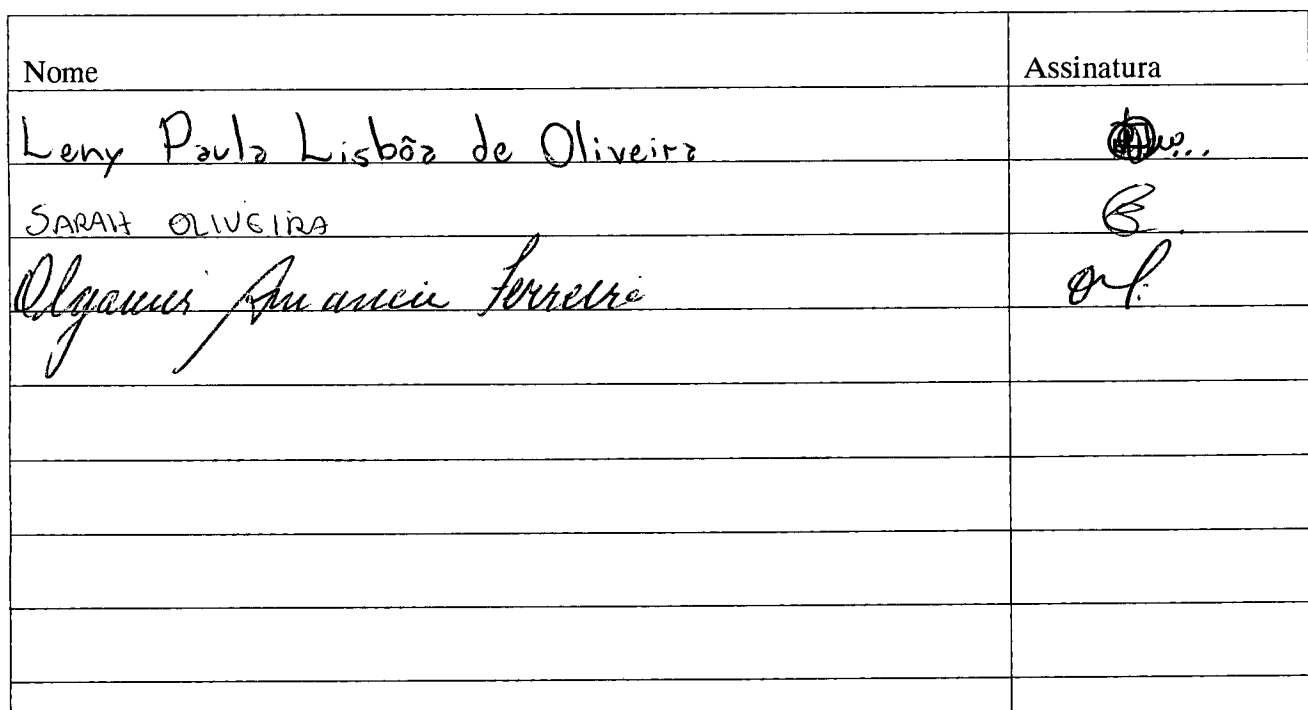 Nome Assinatura
Leny Paula Lisbôa de Oliveira
SARAH OLIVEIRA
Amancio Ferreira